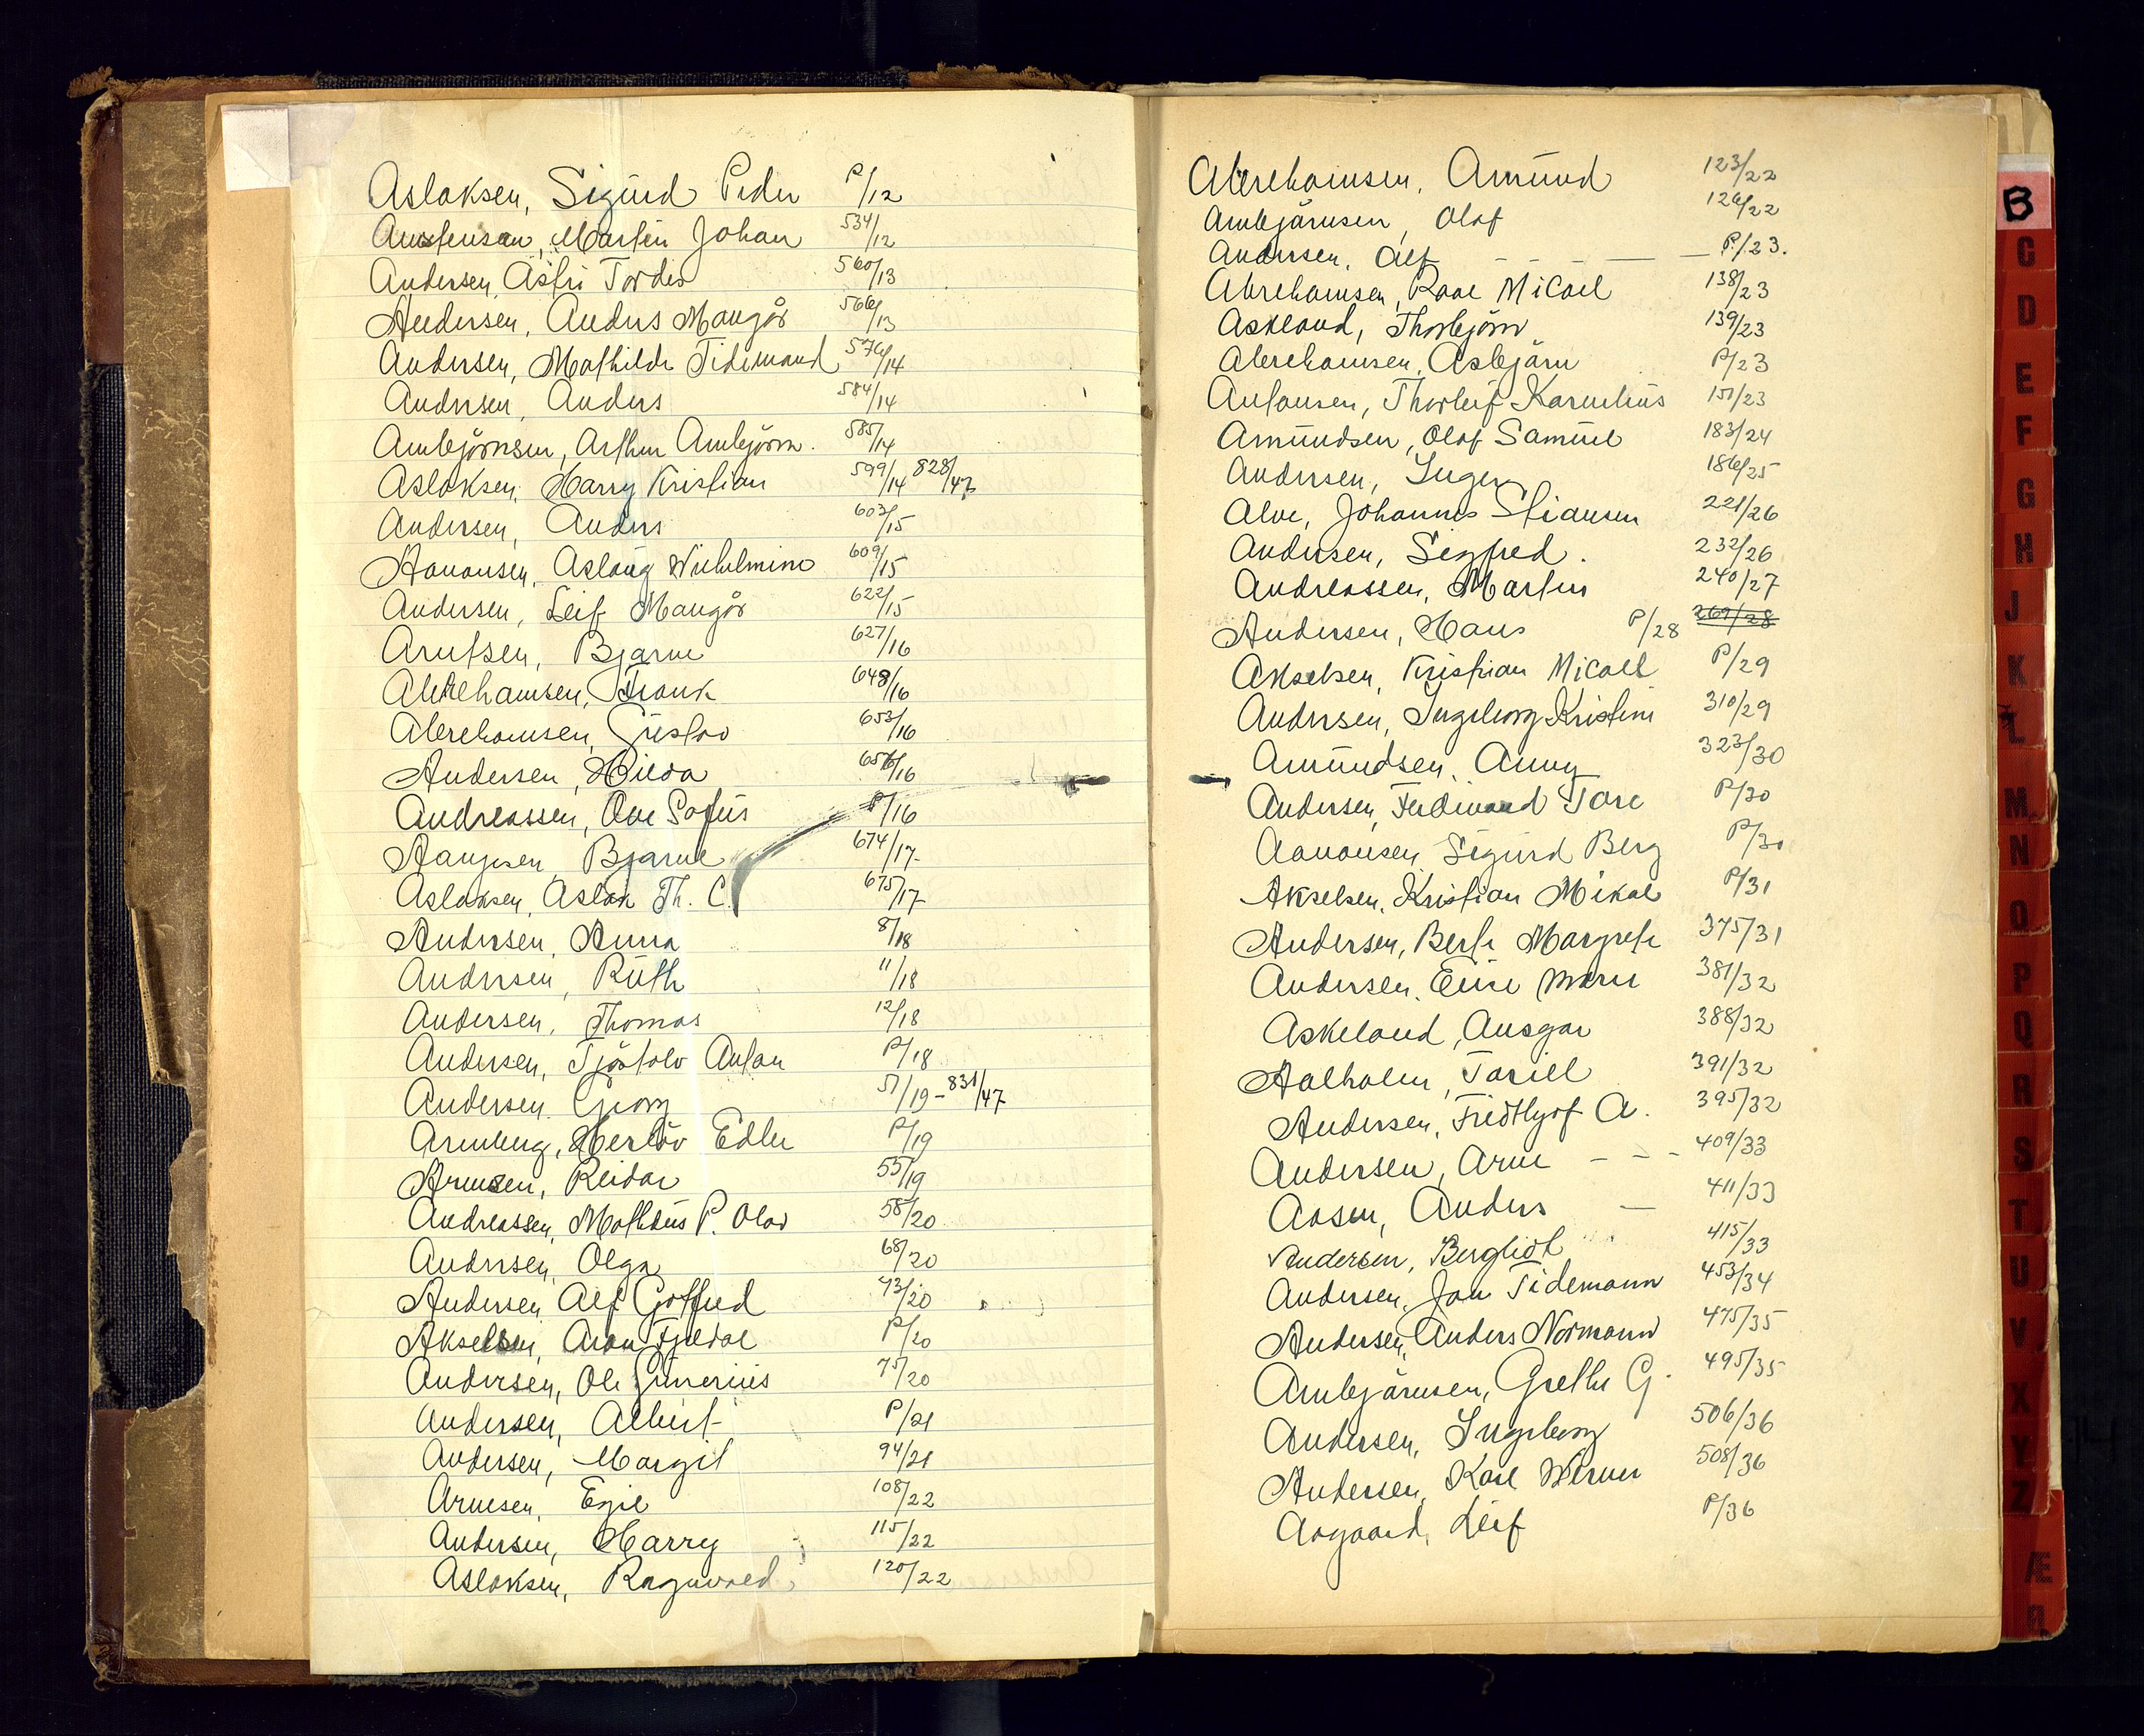 Aslaksen, Sigurd Peder P/12
Martin Johan 534/12
Andersen, Astri Tordis 560/13
Andersen, Anders Mangår 566/13
Andersen, Mathilde Tidemand 576/14
Andersen, Anders 584/14
Ambjörnsen, Arthur Ambjörn. 585/14
Aslaksen, Harry Kristian 599/14 828/47
Andersen, Anders 603/15
Aanonsen, Aslaug Wilhelmine 609/15
Andersen, Leif Mangår 622/15
Arntsen, Bjarne 627/16
Abrehamsen, Frank 648/16
Abrehamsen, Gustav 653/16
Andersen, Hilda 656/16
Andreassen, Ove Sofus P/16
Bjarne 674/17
Aslaksen, Aslak Th. C. 675/17
Andersen, Anna 8/18
Andersen, Ruth 11/18
Andersen, Thomas 12/18
Andersen, Tjöstolv Antan P/18
Andersen, Georg 51/19 - 831/47
Arenberg, Herlöv Edler P/19
Arnesen, Reidar 55/19
Andreassen, Mathæus P. Olav 58/20
Andersen, Olga 68/20
Andersen, Alf Gotfred 73/20
Akselsen, Aron Fjeldal P/20
Andersen, Ole Gunerius 75/20
Andersen, Albert P/21
Andersen, Margit 94/21
Arnesen, Egil 108/22
Andersen, Harry 115/22
Aslaksen, Ragnvald 120/22
Abrehamsen, Amund 123/22
Ambjärnsen, Olaf 126/22
Andersen, Alf - - - - P./23.
Abrehamsen, Roal Micael 138/23
Askeland, Thorbjörn 139/23
Abrehamsen, Asbjärn P/23
Antansen, Thorleif Karnelius 151/23
Amundsen, Olaf Samuel 183/24
Andersen, Inger 186/25
Alve, Johannes Stiansen 221/26
Andersen, Sigfred. 232/26
Andreassen, Martin 240/27
Andersen, Hans P/28 269/28
Akselsen, Kristian Micael P/29
Andersen, Ingeborg Kristine 310/29
Amundsen, Anny 323/30
Andersen, Ferdinand Tore P/30
Aanonsen, Sigurd Berg P/30
Akselsen, Kristian Mikal P/31
Andersen, Berte Margrete 375/31
Andersen, Elise Marie 381/32
Askeland, Ansgar 388/32
Aalholm, Toriell 391/32
Andersen, Fridthjof A. 395/32
Andersen, Arne - - - 409/33
Aasen, Anders - 411/33
Andersen, Bergliot 415/33
Andersen, Jan Tidemann 453/34
Andersen, Anders Normann 475/35
Ambjärnsen, Grethe G. 495/35
Andersen, Ingeborg 506/36
Andersen, Karl Werner 508/36
Aagaard, Leif P/36
B
C
D
E
F
G
H
J
K
L
M
N
O
P
Q
R
S
T
U
V
X
Y
Z
Æ
Ø